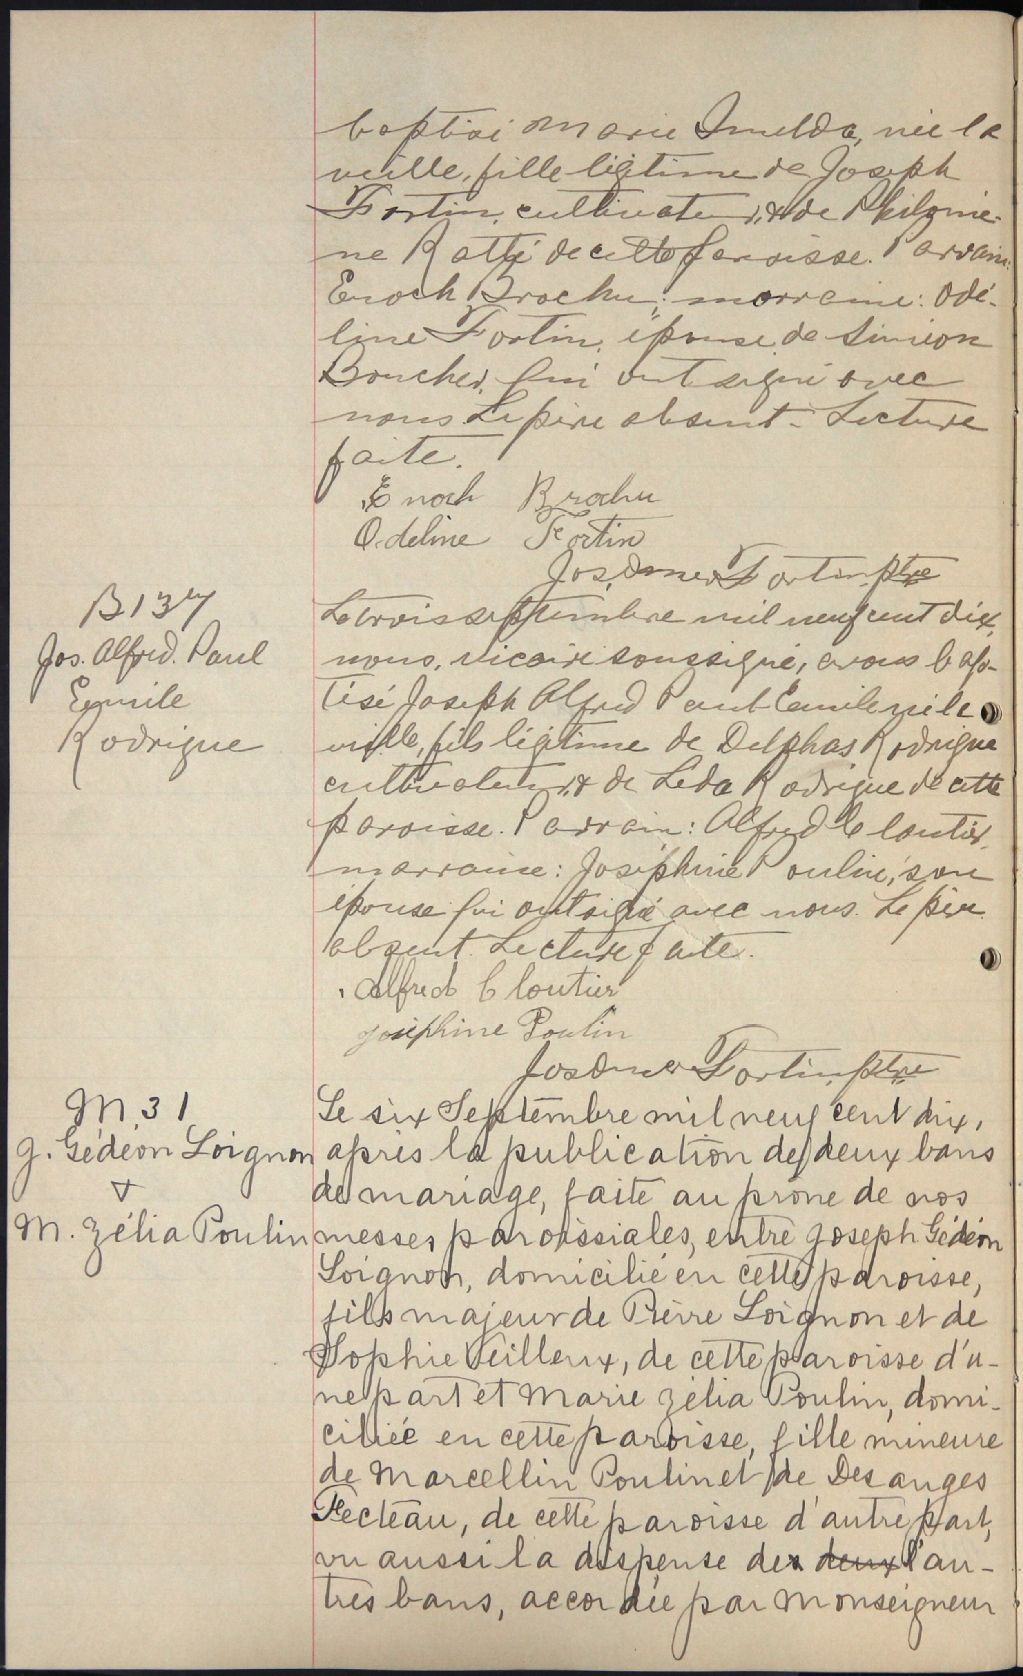 baptisé Marie Imelda, née la
veille, fille légitime de Joseph
Fortin, cultivateur, & de Philomè-
ne Ratté de cette paroisse. Parrain:
Enoch Brochu; marraine: Odé-
line Fortin, épouse de Siméon
Boucher, qui ont signé avec
nous. Le père absent. Lecture
faite.
Enoch Brochu
Odeline Fortin
Jos. Omer Fortin, ptre
B 137
Jos. Alfred. Paul
Emile
Rodrigue
Le trois septembre mil neuf cent dix,
nous, vicaire soussigné, avons bap-
tisé Joseph Alfred Paul Emile né la
veille, fils légitime de Delphas Rodrigue
cultivateur, & de Léda Rodrigue de cette
paroisse. Parrain: Alfred Cloutier,
marraine: Joséphine Poulin, son
épouse qui ont signé avec nous. Le père
absent. Lecture faite.
Alfred Cloutier
Joséphine Poulin
Jos Omer Fortin, ptre
M. 31
J. Gédéon Loignon
&
M. Zélia Poulin
Le six Septembre mil neuf cent dix,
après la publication de deux bans
de mariage, faite au prône de nos
messes paroissiales, entre Joseph Gédéon
Loignon, domicilié en cette paroisse,
fils majeur de Pierre Loignon et de
Sophie Veilleux, de cette paroisse d'u-
ne part et Marie Zélia Poulin, domi-
ciliée en cette paroisse, fille mineure
de Marcellin Poulin et de Desanges
Fecteau, de cette paroisse d'autre part,
vu aussi la dispense des deux l'au-
tres bans, accordée par Monseigneur